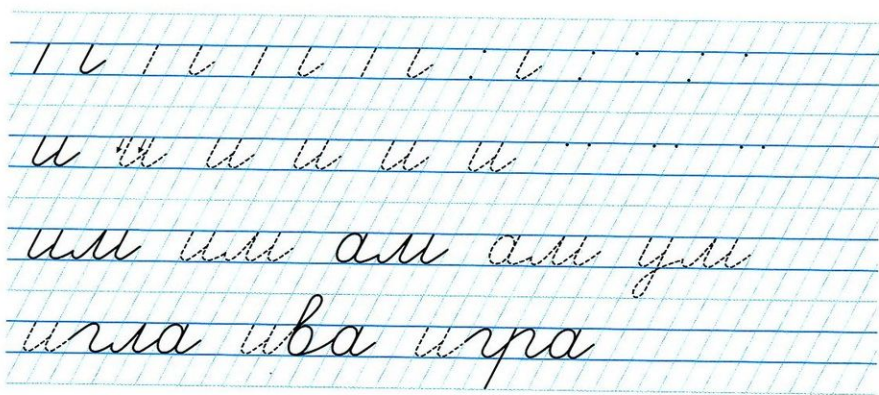 и и и и и и
им им ам ам ум
игла ива игра